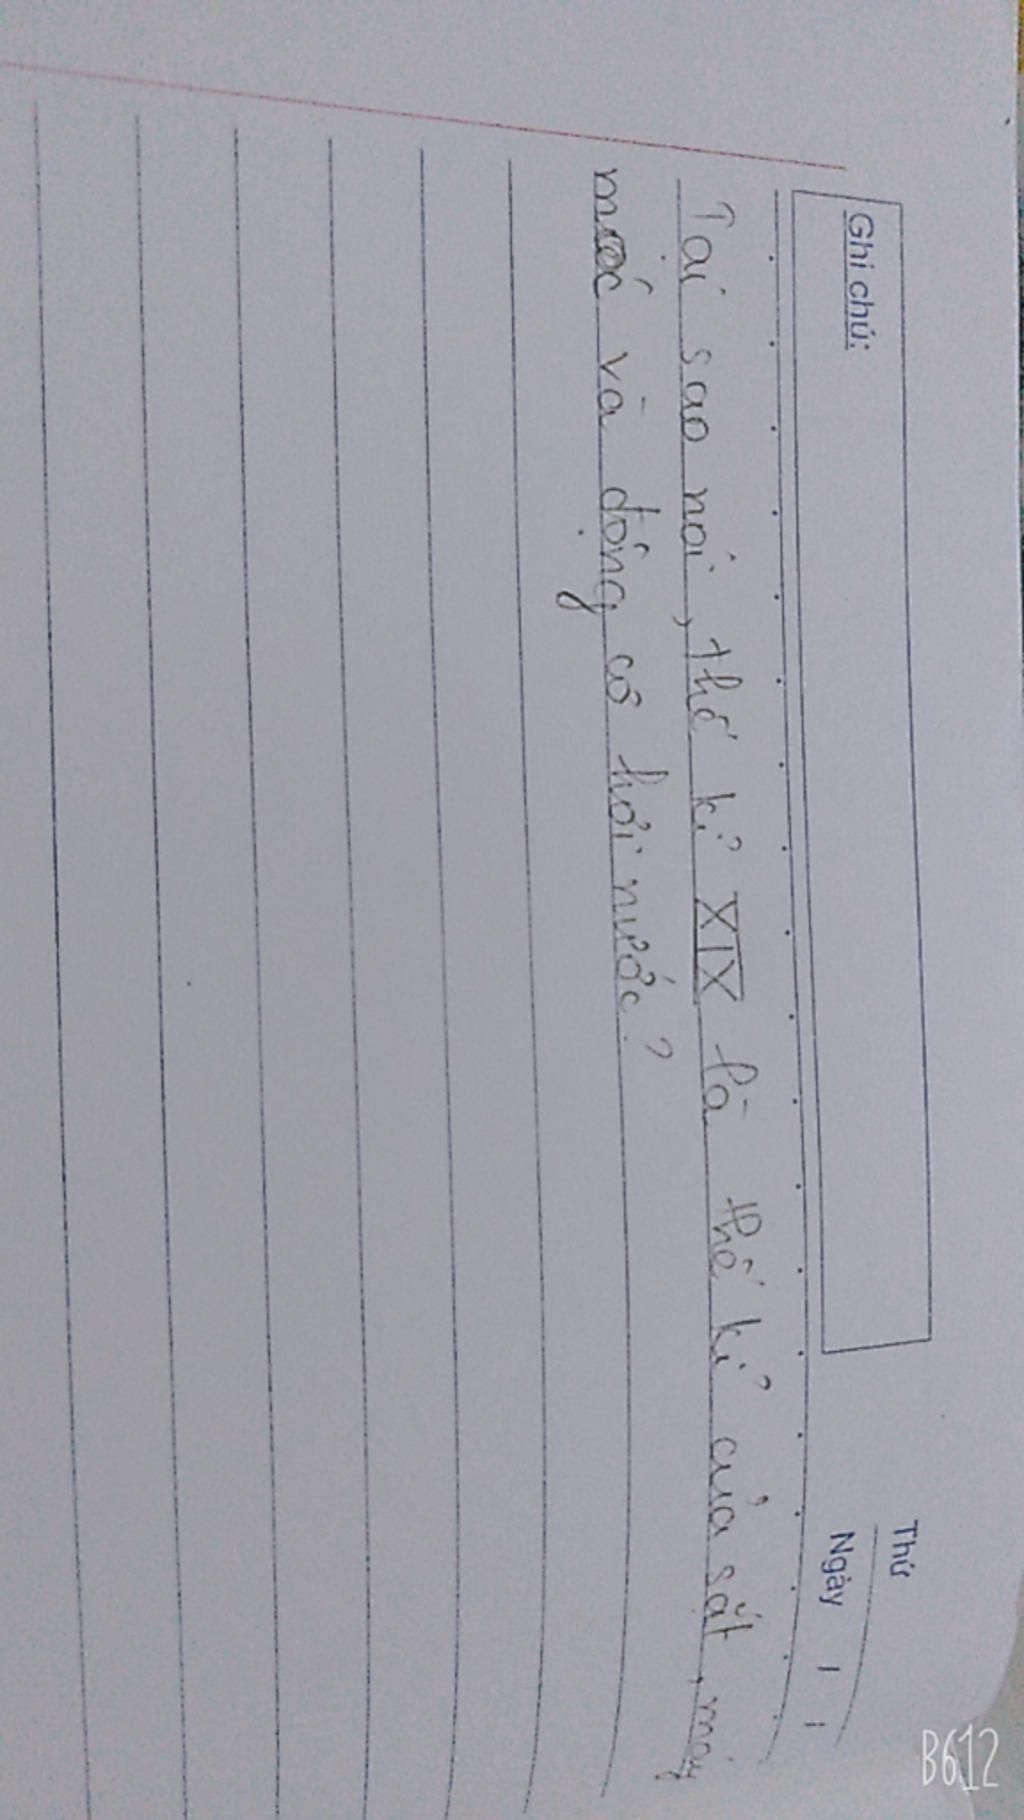 Ghi chú:
Thứ
Ngày / /
Tại sao nói, thế kỉ XIX là thế kỉ của sắt, máy
móc và động cơ hơi nước?
B612